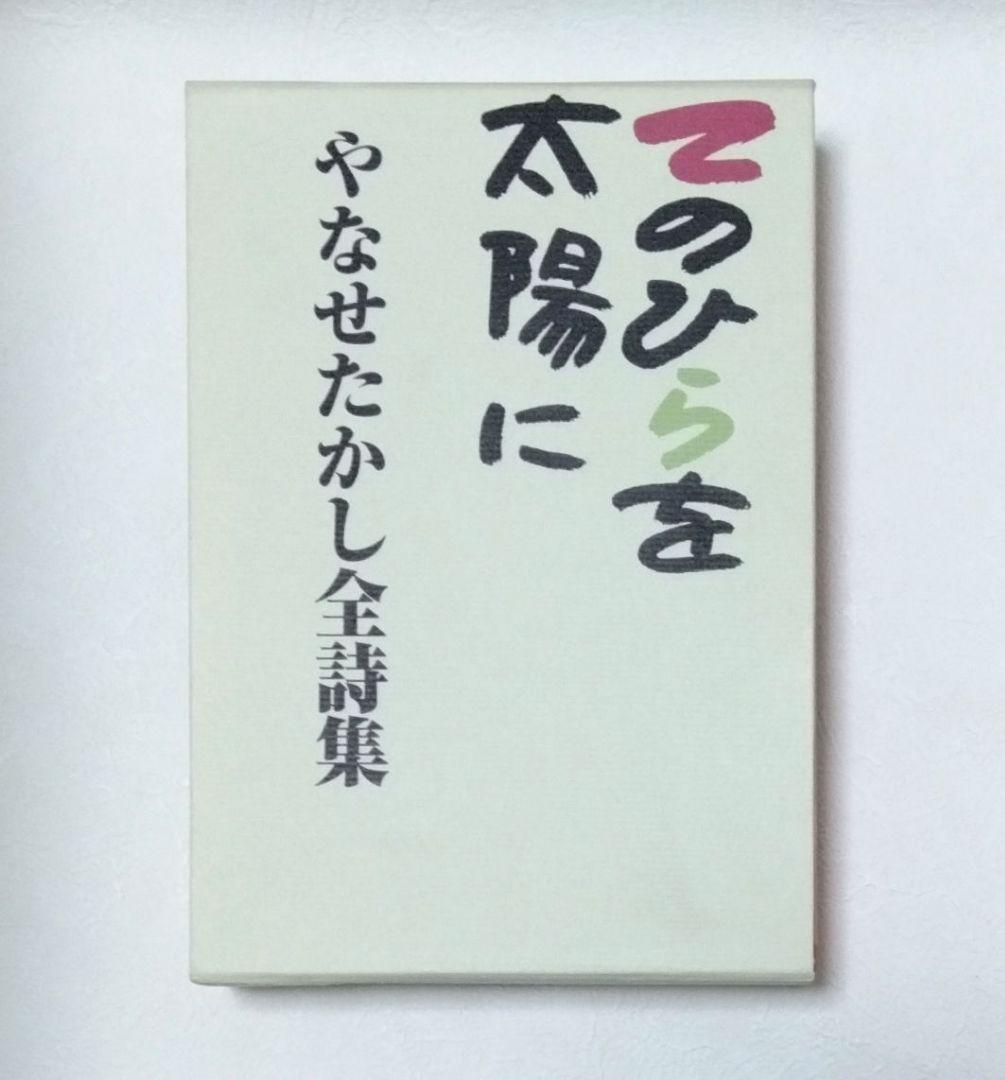 てのひらを
太陽に
やなせたかし全詩集